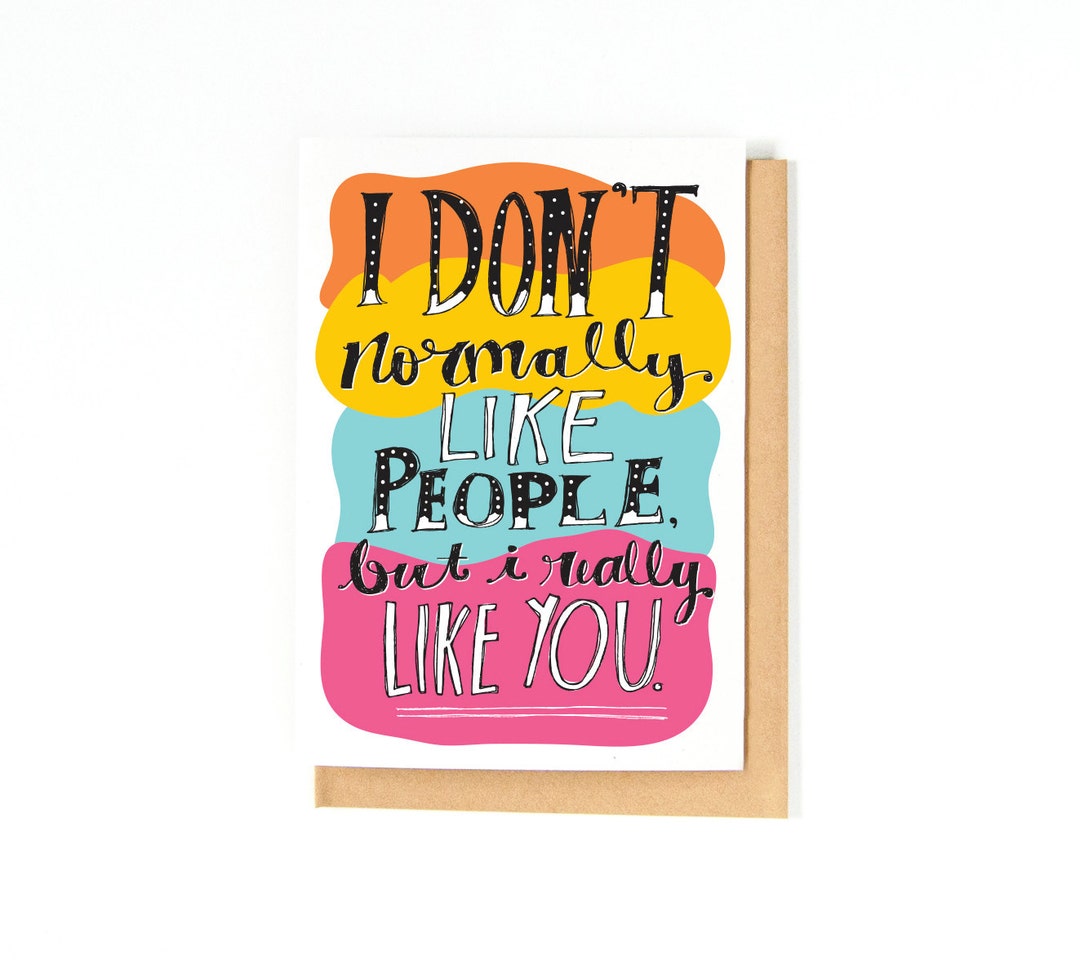 I DON'T
normally
LIKE
PEOPLE,
but i really
LIKE YOU.